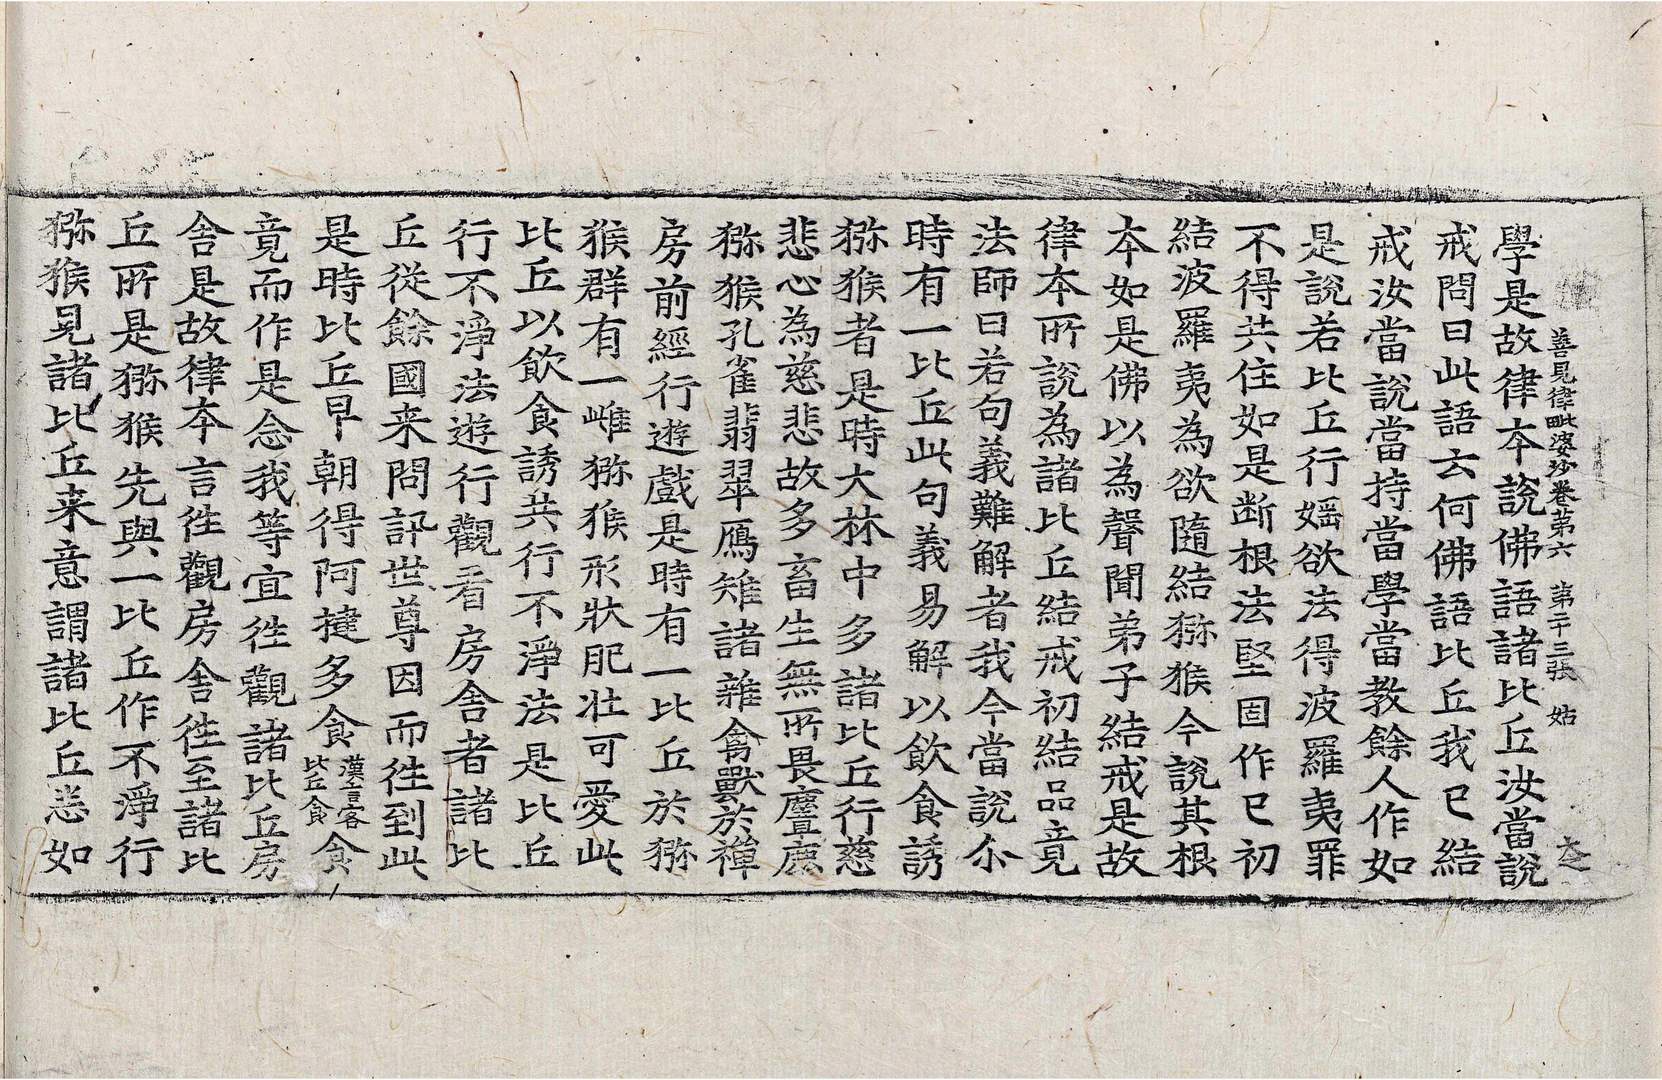 善見律毗婆沙卷第六　第十三張　姑
學是故律本說佛語諸比丘汝當說
戒問曰此語云何佛語比丘我已結
戒汝當說當持當學當教餘人作如
是說若比丘行婬欲法得波羅夷罪
不得共住如是断根法堅固作已初
結波羅夷為欲隨結猕猴今說其根
本如是佛以為聲聞弟子結戒是故
律本所說為諸比丘結戒初結品竟
法師曰若句義難解者我今當說尒
時有一比丘此句義易解以飲食誘
猕猴者是時大林中多諸比丘行慈
悲心為慈悲故多畜生無所畏麞鹿
猕猴孔雀翡翠鴈雉諸雜禽獸於禪
房前經行遊戲是時有一比丘於猕
猴群有一雌猕猴形狀肥壯可愛此
比丘以飲食誘共行不淨法是比丘
行不淨法遊行觀看房舍者諸比
丘從餘國来問訊世尊因而徃到此
是時比丘早朝得阿揵多食漢言客比丘食食
竟而作是念我等宜徃觀諸比丘房
舍是故律本言徃觀房舍徃至諸比
丘所是猕猴先與一比丘作不淨行
猕猴見諸比丘来意謂諸比丘悉如